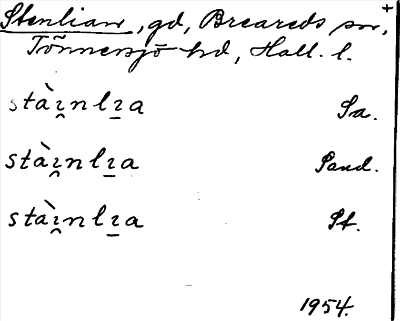 Stenlian, gd, Breareds sn,
Tönnersjö hd, Hall. l.
stàı̯nlı̱a Sa.
stàı̯nlı̱a Sand.
stàı̯nlı̱a St.
1954.